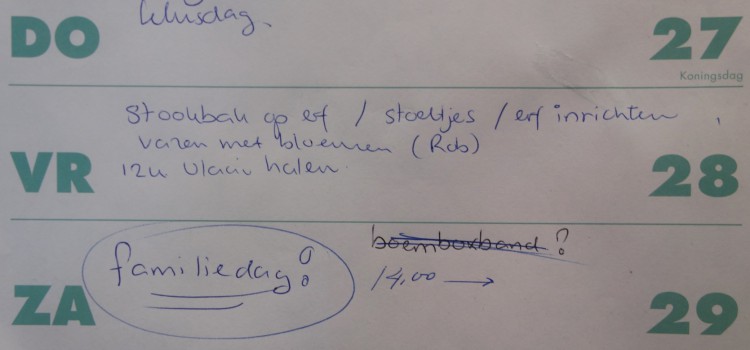 DO
Klusdag.
27
Koningsdag
stookbak op erf / stoeltjes / erf inrichten,
vazen met bloemen (Rob)
VR
12u halen
28
boemboxband?
familiedag!
14.00 →
ZA
29